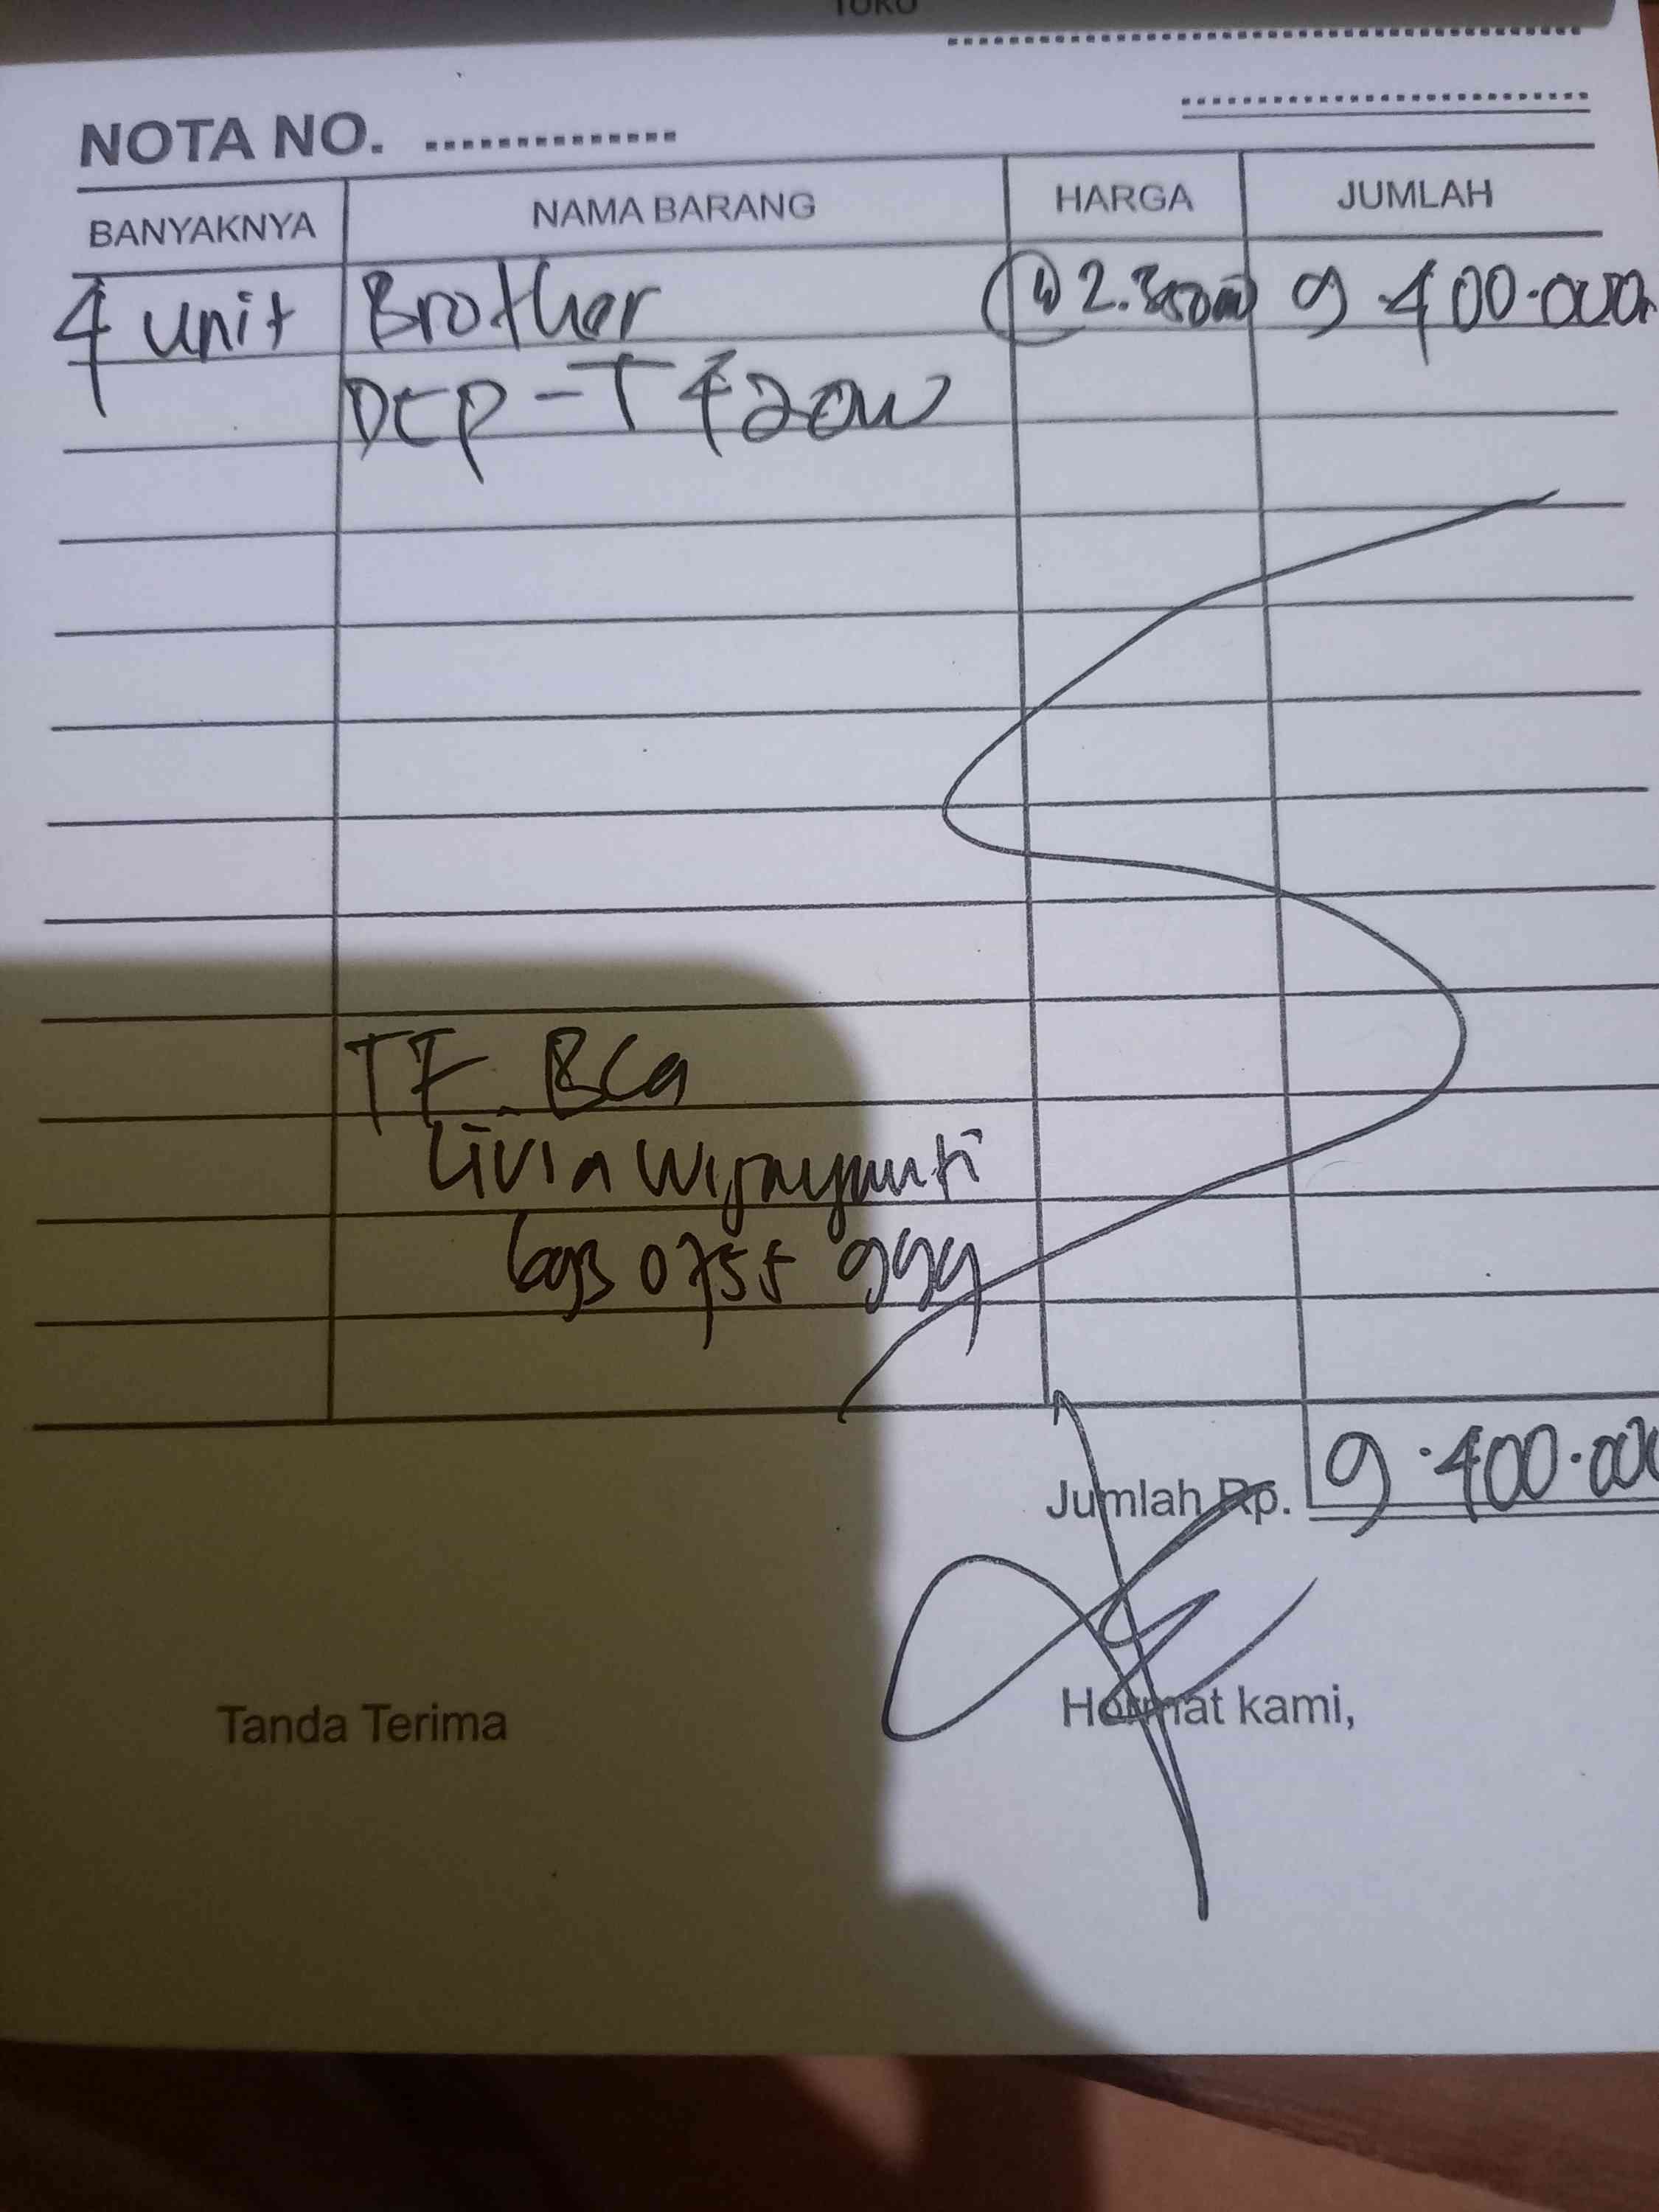 TOKO
NOTA NO. ..............
BANYAKNYA NAMA BARANG HARGA JUMLAH
4 unit Brother @ 2.350.000 9.400.000
DCP-T420W
TF. BCA
Livia Wijayanti
0755 999
Jumlah Rp. 9.400.000
Tanda Terima Hormat kami,